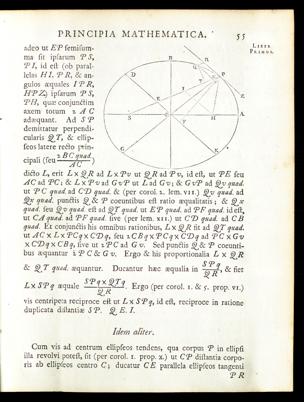 PRINCIPIA MATHEMATICA. 55
LIBER
PRIMUS.
adeo ut EP semisum-
ma sit ipsarum PS,
PI, id est (ob paral-
lelas HI, PR, & an-
gulos æquales IPR,
HPZ) ipsarum PS,
PH, quæ conjunctim
axem totum 2 AC
adæquant. Ad SP
demittatur perpendi-
cularis QT, & ellip-
seos latere recto prin-
cipali (seu 2 BC quad. / AC)
dicto L, erit L x QR ad L x Pv ut QR ad Pv, id est, ut PE seu
AC ad PC; & L x Pv ad GvP ut L ad Gv; & GvP ad Qv quad.
ut PC quad. ad CD quad. & (per corol. 2. lem. VII.) Qv quad. ad
Qx quad. punctis Q & P coeuntibus est ratio æqualitatis; & Qx
quad. seu Qv quad. est ad QT quad. ut EP quad. ad PF quad. id est,
ut CA quad. ad PF quad. sive (per lem. XII.) ut CD quad. ad CB
quad. Et conjunctis his omnibus rationibus, L x QR fit ad QT quad.
ut AC x L x PCq x CDq, seu 2 CBq x PCq x CDq ad PC x Gv
x CDq x CBq, sive ut 2 PC ad Gv. Sed punctis Q & P coeunti-
bus æquantur 2 PC & Gv. Ergo & his proportionalia L x QR
& QT quad. æquantur. Ducantur hæc æqualia in SPq / QR, & fiet
L x SPq æquale SPq x QTq / QR. Ergo (per corol. 1. & 5. prop. VI.)
vis centripeta reciproce est ut L x SPq, id est, reciproce in ratione
duplicata distantiæ SP. Q. E. I.
Idem aliter.
Cum vis ad centrum ellipseos tendens, qua corpus P in ellipsi
illa revolvi potest, sit (per corol. 1. prop. X.) ut CP distantia corpo-
ris ab ellipseos centro C; ducatur CE parallela ellipseos tangenti
PR